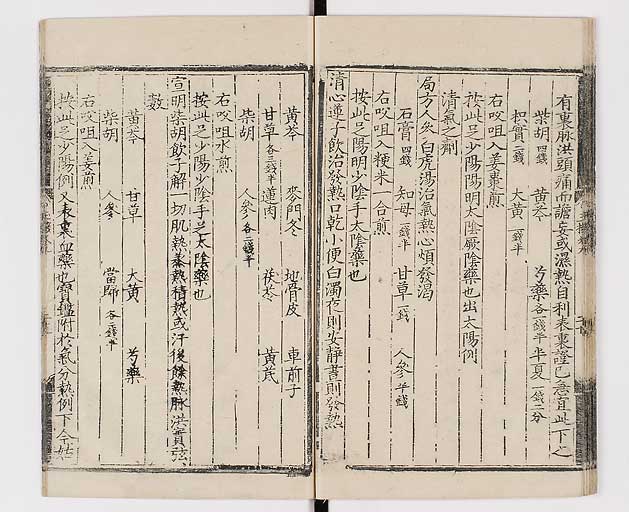 有裏脉洪頭痛而譫妄或濕熱自利表裏證已急宜此下之
柴胡四錢 黃芩 芍藥各二錢半 半夏一錢二分
枳實二錢 大黃一錢半
右㕮咀入姜棗煎
按此足少陽陽明太陰厥陰藥也出太陽例
清氣之劑
局方人參白虎湯治氣熱心煩發渴
石膏四錢 知母一錢半 甘草一錢 人參半錢
右㕮咀入粳米一合煎
按此足陽明少陰手太陰藥也
清心蓮子飲治發熱口乾小便白濁夜則安靜晝則發熱
黃芩 麥門冬 地骨皮 車前子
甘草各三錢半 蓮肉 茯苓 黃芪
柴胡 人參各二錢半
右㕮咀水煎
按此足少陽少陰手足太陰藥也
宣明柴胡飲子解一切肌熱蒸熱積熱或汗後餘熱脉洪實弦
數
黃芩 甘草 大黃 芍藥
柴胡 人參 當歸各二錢半
右㕮咀入姜煎
按此足少陽例又表裏血藥也寶鑑附於氣分熱例下今姑